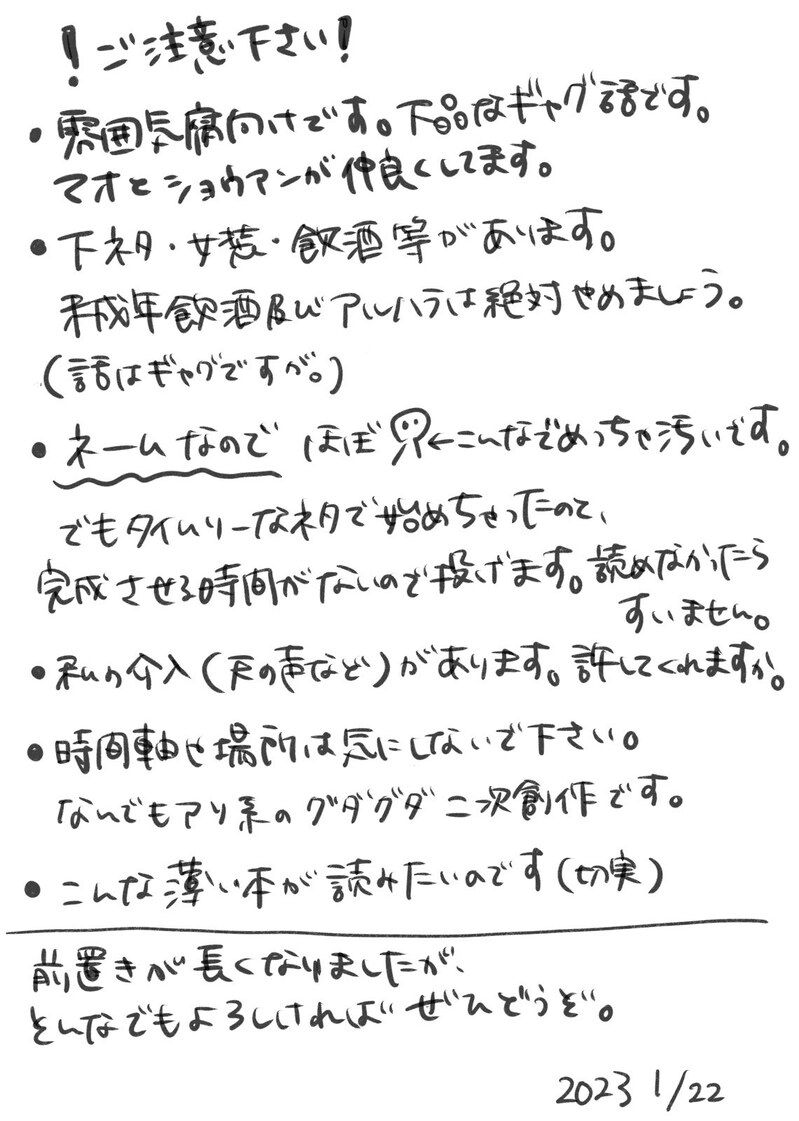 ！ご注意下さい！
・雰囲気腐向けです。下品なギャグ話です。
マオとショウアンが仲良くしてます。
・下ネタ・女装・飲酒等があります。
未成年飲酒及びアルハラは絶対やめましょう。
（話はギャグですが。）
・ネームなので ほぼ ←こんなでめっちゃ汚いです。
でもタイムリーなネタで始めちゃったので、
完成させる時間がないので投げます。読めなかったら
すいません。
・私の介入（天の声など）があります。許してくれますか。
・時間軸や場所は気にしないで下さい。
なんでもアリ系のグダグダ二次創作です。
・こんな薄い本が読みたいのです（切実）
前置きが長くなりましたが、
そんなでもよろしければ ぜひどうぞ。
2023 1/22